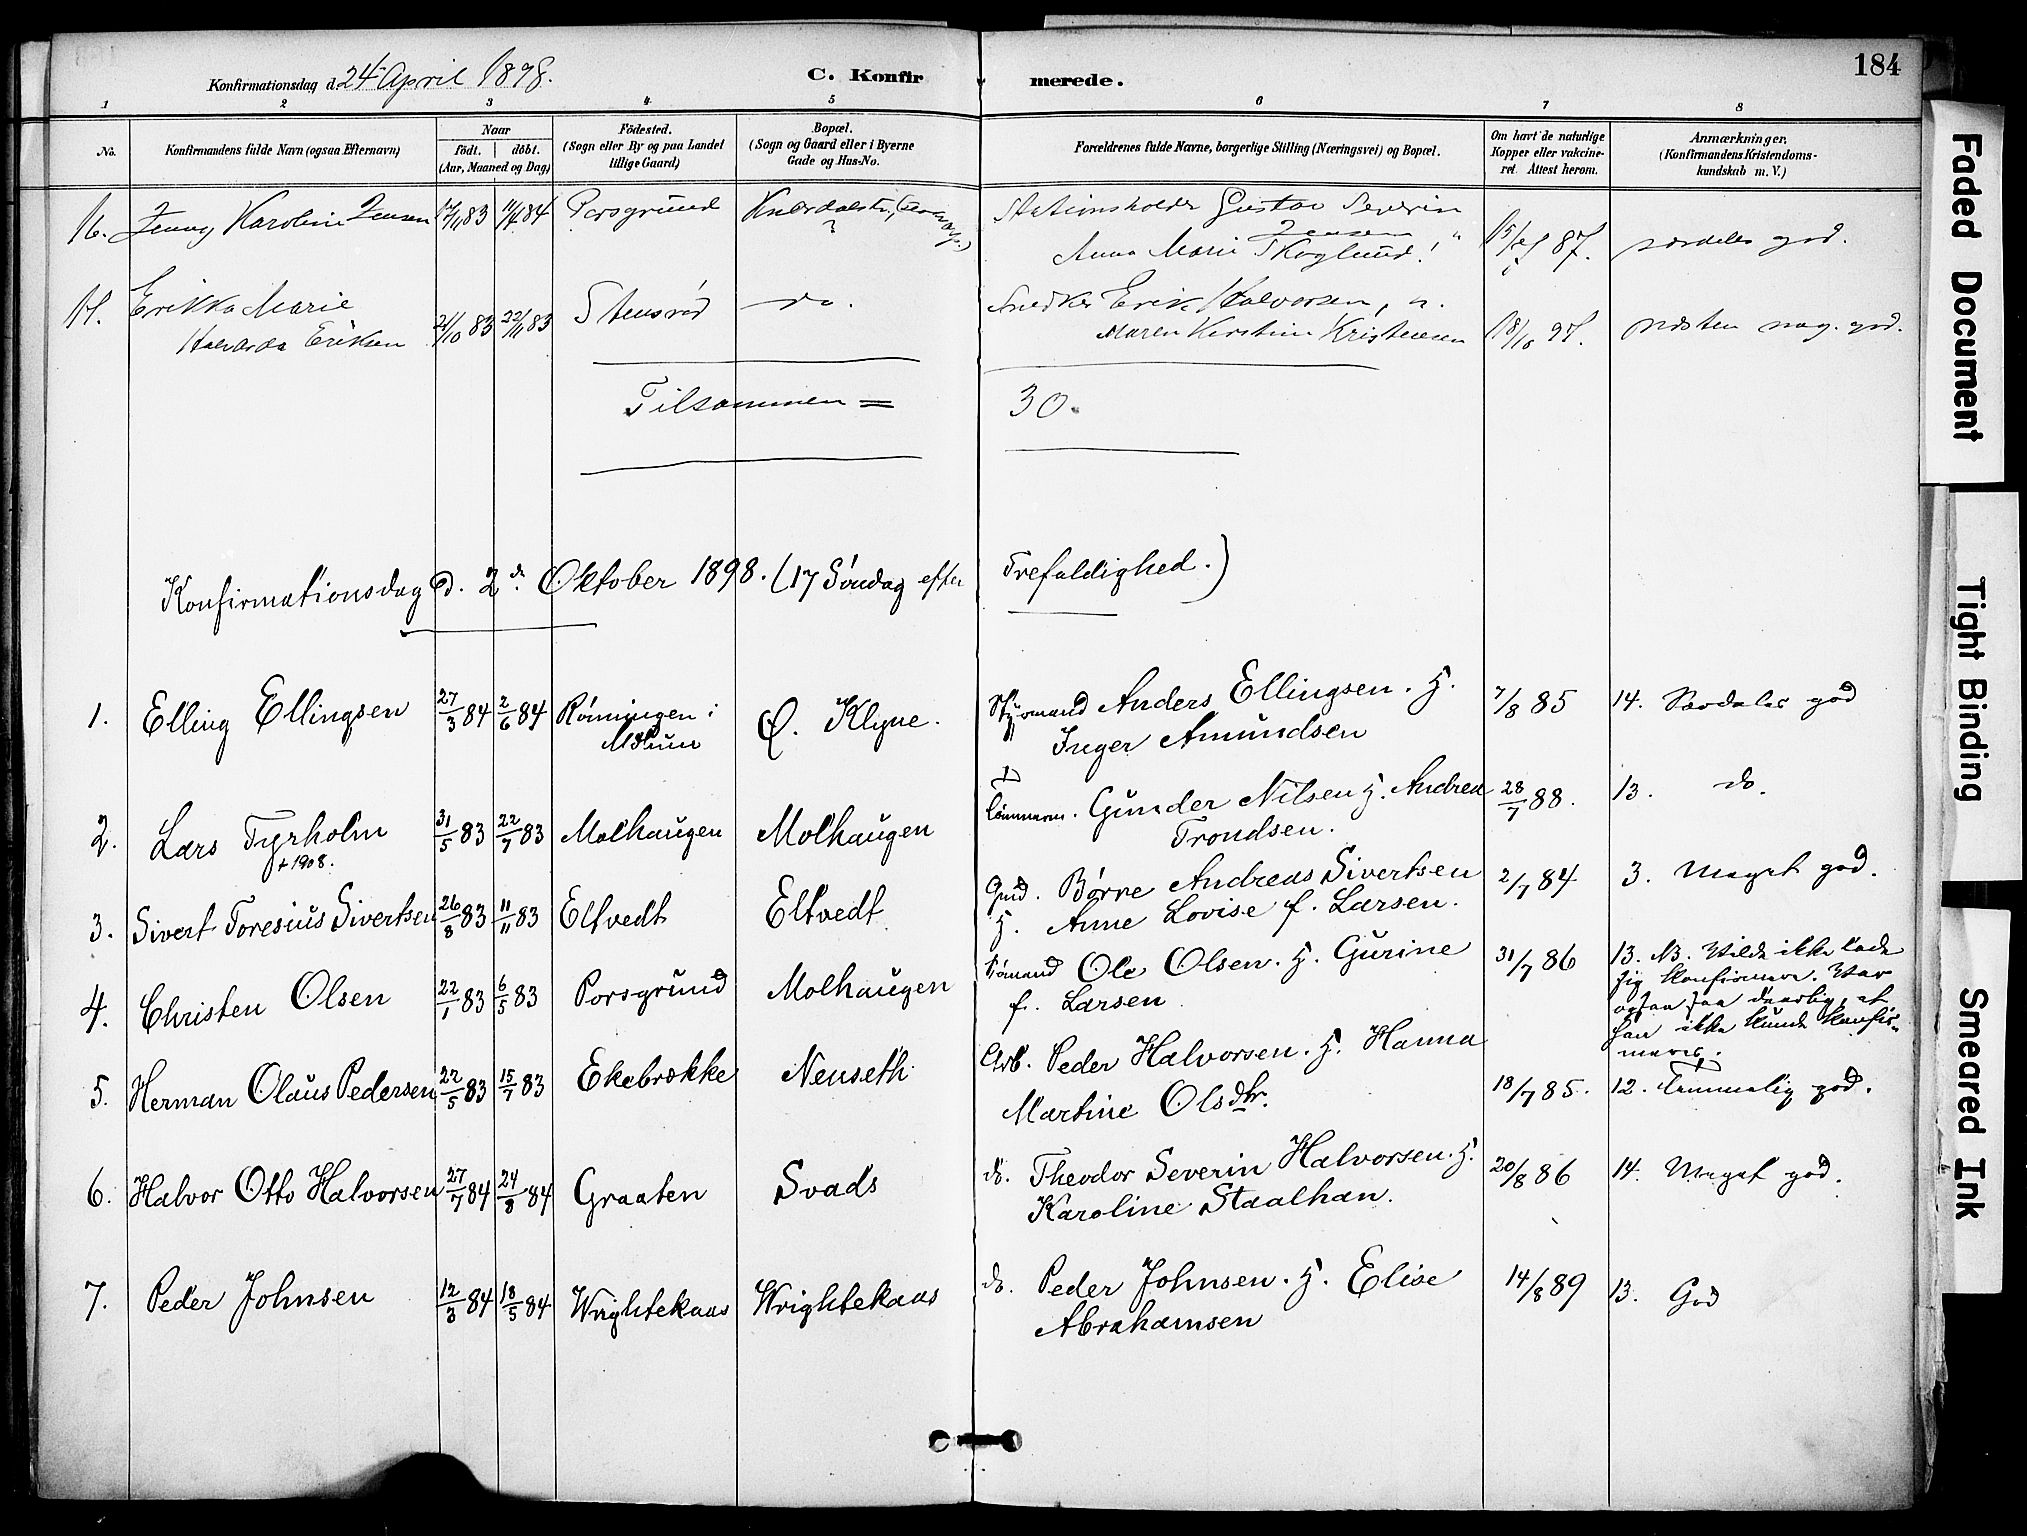 184
Konfirmationsdag d. 24 April 1898.
C. Konfirmerede.
1 2 3 4 5 6 7 8
No.
Konfirmandens fulde Navn (ogsaa Efternavn)
Naar
födt. | döbt.
(Aar, Maaned og Dag)
Födested.
(Sogn eller By og paa Landet
tillige Gaard)
Bopæl.
(Sogn og Gaard eller i Byerne
Gade og Hus-No.
Forældrenes fulde Navne, borgerlige Stilling (Næringsvei) og Bopæl.
Om havt de naturlige
Kopper eller vakcine-
ret. Attest herom.
Anmærkninger.
(Konfirmandens Kristendoms-
kundskab m. V.)
16. Jenny Karoline Jensen 17/11 83 11/4 84 Porsgrund
Stationsholder Gustav Severin
Jensen
Anna Marie Skoglund! 87. særdeles god.
17. Erikka Marie
Halvarda Eriksen 21/10 83 22/11 83 Stensrød do.
Snedker Erik Halvorsen,
Maren Kirstine Kristensen 18/10 97. næsten meg. god.
Tilsammen = 30.
Konfirmationsdag d. 2de Oktober 1898. (17 Søndag efter Trefoldighed.)
1. Elling Ellingsen 27/3 84 2/6 84 Rønningen i
Mælum
Ø. Klyve.
Styrmand Anders Ellingsen. H.
Inger Amundsen
7/8 85 14. Særdeles god
2. Lars Tyrholm
+ 1908.
31/5 83 22/7 83 Molhaugen Molhaugen
Tømmerm. Gunder Nilsen H. Andrea
Trondsen.
28/7 88. 13. do.
3. Sivert Toresius Sivertsen 26/8 83 11/11 83 Eltvedt Eltvedt
Gmd. Børre Andreas Sivertsen
H. Anne Lovise f. Larsen.
2/7 84 3. Meget god.
4. Christen Olsen 22/1 83 6/5 83 Porsgrund Molhaugen
Sømand Ole Olsen. H. Gurine
f. Larsen
31/7 86 13. NB. Vilde ikke lade
sig konfirmere. Var
ogsaa saa daarlig, at
han ikke kunde konfir-
meres.
5. Herman Olaus Pedersen 22/5 83 15/7 83 Ekebrække Nenseth
Arb. Peder Halvorsen. H. Hanna
Martine Olsdtr.
18/7 85. 12. Temmelig god.
6. Halvor Otto Halvorsen 27/7 84 24/8 84 Graaten Svads
do. Theodor Severin Halvorsen. H.
Karoline Staalhan.
20/8 86 14. Meget god.
7. Peder Johnsen 12/3 84 18/5 84 Wrightekaas Wrightekaas
do. Peder Johnsen. H. Elise
Abrahamsen
14/8 89 13. God
Faded Document
Tight Binding
Smeared Ink